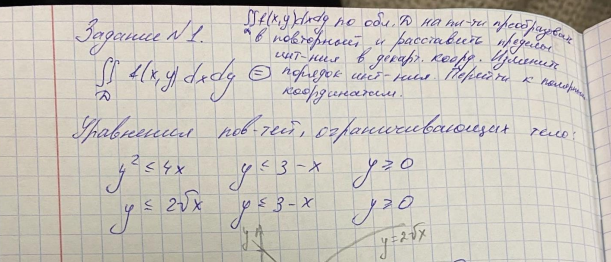 Задание N1.
∬ f(x,y)dxdy по обл. D на пл-ти преобразовать
D в повторный и расставить пределы
инт-ния в декарт. коорд. Изменить
порядок инт-ния. Перейти к полярным
координатам.
∬ f(x,y) dxdy =
D
Уравнения пов-тей, ограничивающих тело:
y² ≤ 4x y ≤ 3 - x y ≥ 0
y ≤ 2√x y ≤ 3 - x y ≥ 0
y y = 2√x